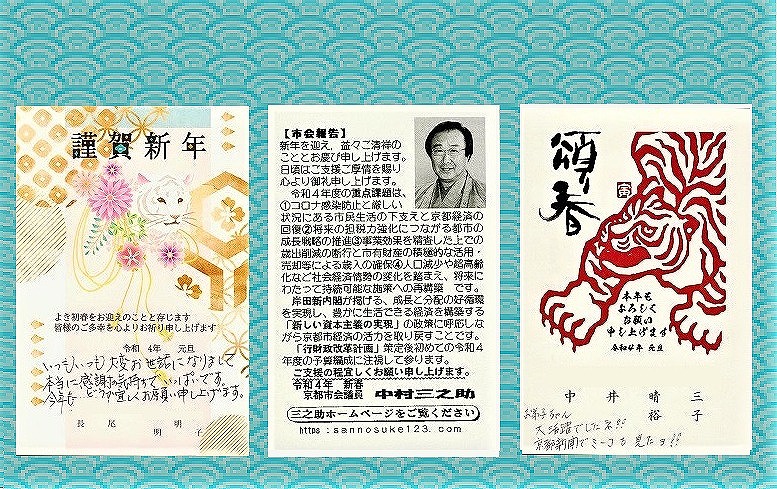 謹賀新年
よき初春をお迎えのことと存じます
皆様のご多幸を心よりお祈り申し上げます
令和 4年 元旦
いつもいつも大変お世話になりまして
本当に感謝の気持ちでいっぱいです。
今年も どうぞ宜しくお願い申し上げます。
長尾 明
明子
【市会報告】
新年を迎え、益々ご清祥の
こととお慶び申し上げます。
日頃はご支援ご厚情を賜り
心より御礼申し上げます。
令和4年度の重点課題は、
①コロナ感染防止と厳しい
状況にある市民生活の下支えと京都経済の
回復②将来の担税力強化につながる都市の
成長戦略の推進③事業効果を精査した上での
歳出削減の断行と市有財産の積極的な活用・
売却等による歳入の確保④人口減少や超高齢
化など社会経済情勢の変化を踏まえ、将来に
わたって持続可能な施策への再構築 です。
岸田新内閣が掲げる、成長と分配の好循環
を実現し、豊かに生活できる経済を構築する
「新しい資本主義の実現」の政策に呼応しなが
ら京都市経済の活力を取り戻すことです。
「行財政改革計画」策定後初めての令和4
年度の予算編成に注視して参ります。
ご支援の程宜しくお願い申し上げます。
令和4年 新春
京都市会議員 中村三之助
三之助ホームページをご覧ください
https:sannosuke123.com/
頌春
寅
本年も
よろしく
お願い
申し上げます
令和4年 元旦
中井 晴三
裕子
お弟子ちゃん
大活躍でしたネ!!
京都新聞でミーコも見たヨ!!